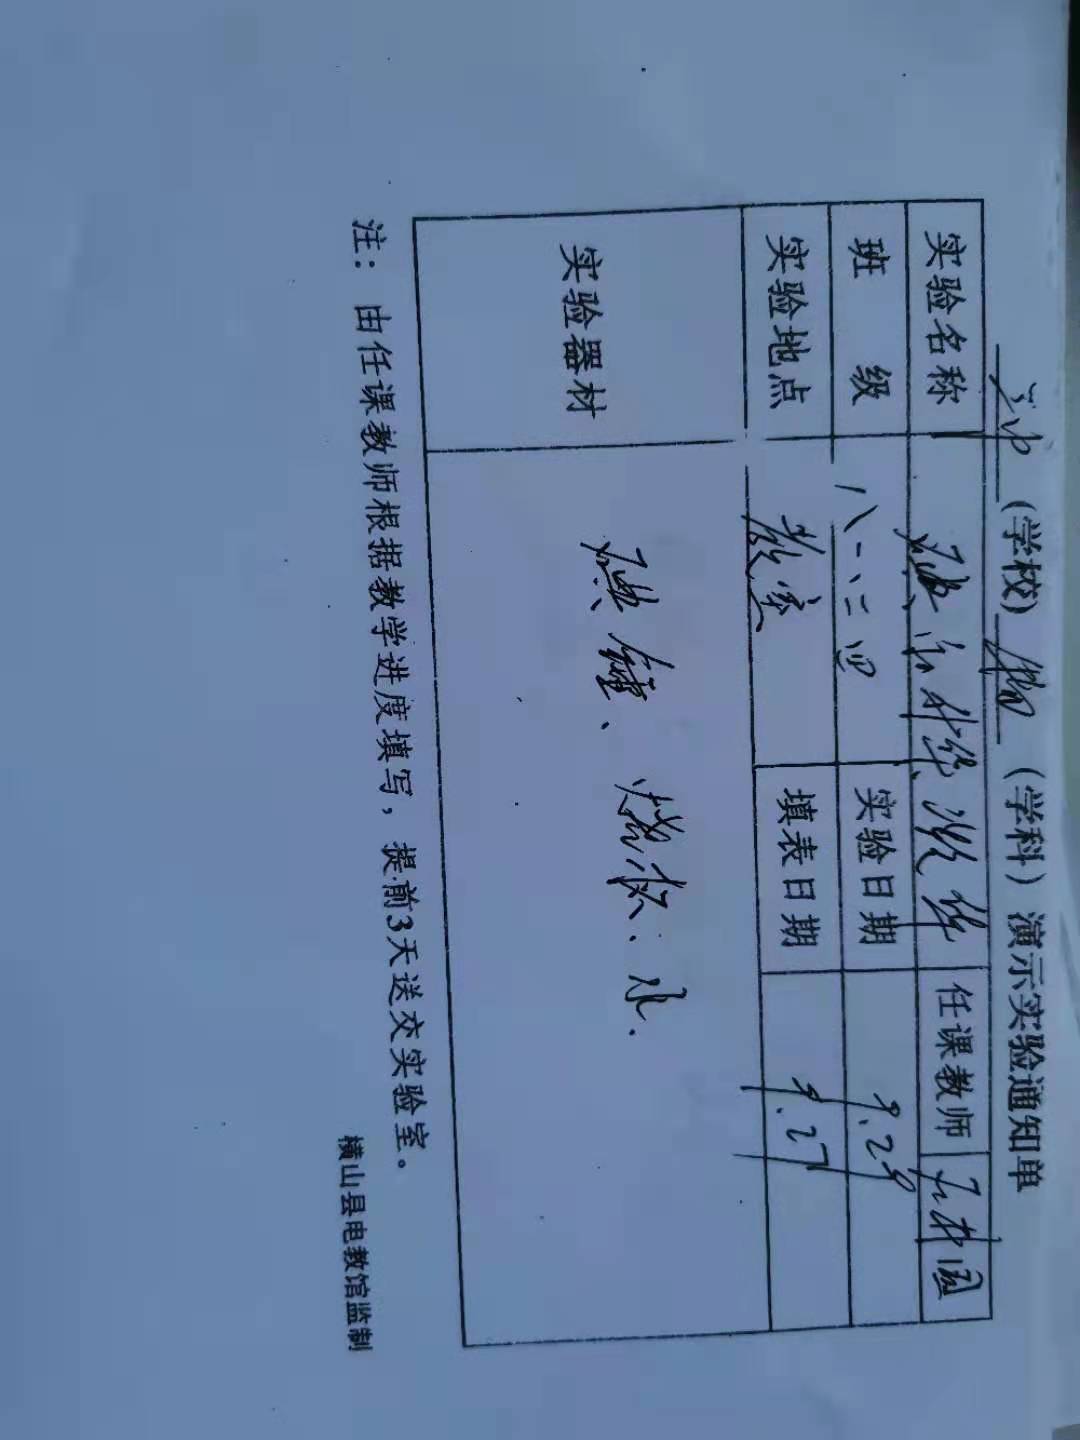 (学校) 物 (学科) 演示实验通知单
实验名称 碘的升华凝华 任课教师
班级 八一、二 四 实验日期 9.29
实验地点 教室 填表日期 9.27
实验器材 碘锤、烧杯、水.
注：由任课教师根据教学进度填写，提前3天送交实验室。
横山县电教馆监制